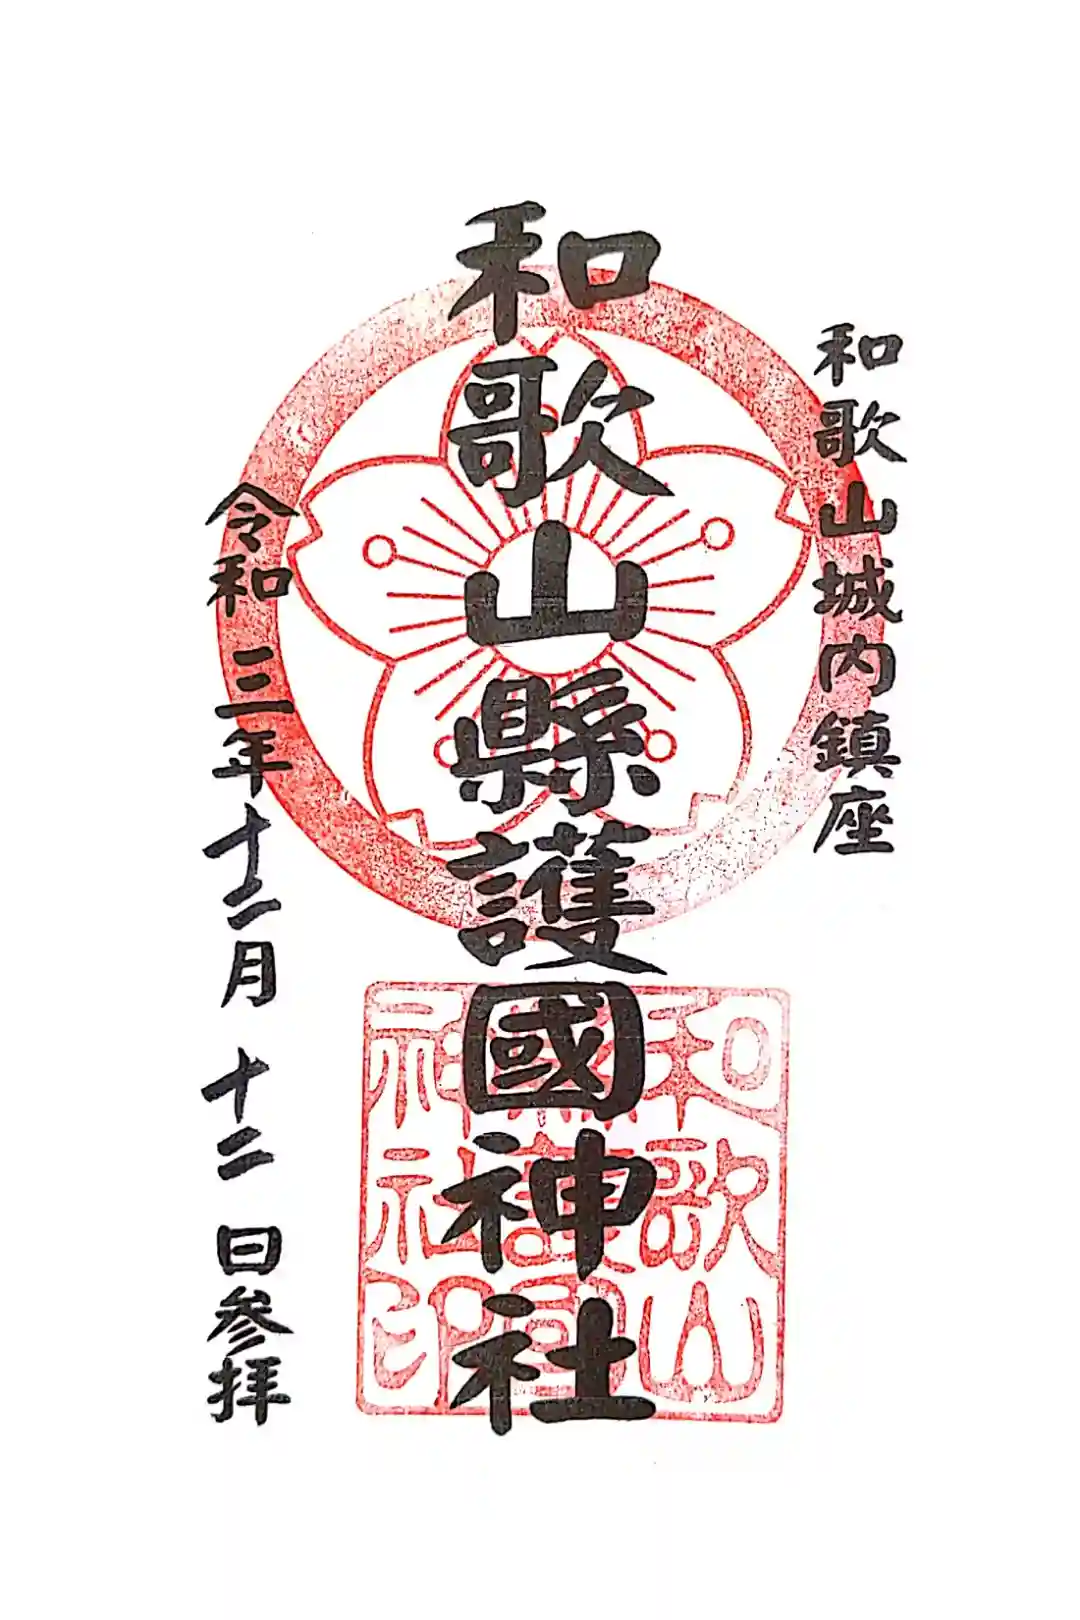 和歌山城内鎮座
和歌山縣護國神社
令和三年十二月十二日参拝
和歌山
縣護國
神社印